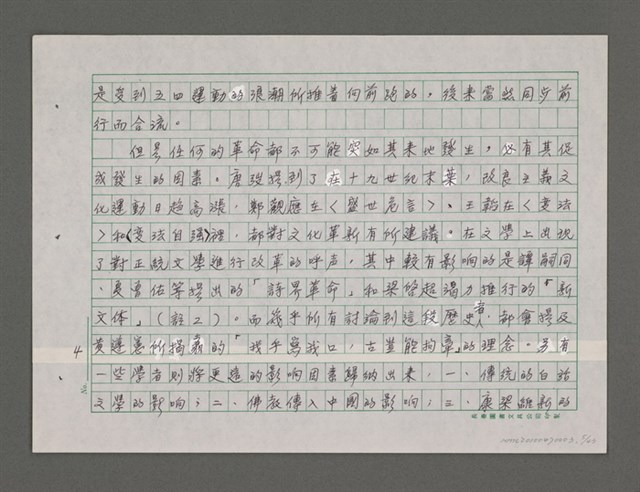 是受到五四運動的浪潮所推着向前跑的，後来當然同步前
行而合流。
但是任何的革命都不可能突如其来地發生，必有其促
成發生的因素。唐弢提到了在十九世紀末葉，改良主義文
化運動日趨高漲，鄭觀應在〈盛世危言〉、王韜在〈变法
〉和〈变法自强〉裡，都對文化革新有所建議。在文學上出現
了對正統文學進行改革的呼声，其中較有影响的是譚嗣同
、夏曾佑等提出的「詩界革命」和梁啓超竭力推行的「新
文体」（註二）。而幾乎所有討論到這段歷史者人，都會提及
黄遵憲所揭櫫的「我手寫我口，古豈能拘牽」的理念。另有
一些學者則將更遠的影响因素歸納出来，一、傳統的白話
文學的影响；二、佛教傳入中國的影响；三、康梁維新的
4
No.